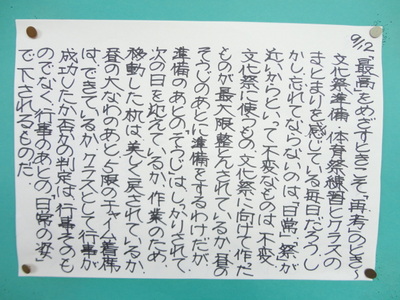 9/12
「最高をめざすときこそ「再考」のとき〜
文化祭準備、体育祭練習とクラスの
まとまりを感じている毎日だろう。し
かし、忘れてならないのは「日常」。祭が
近いからといって不変なものは不変。
文化祭に使うもの、文化祭に向けて作た
ものが最大限整とんされているか、昼の
そうじのあとに準備をするわけだが、
準備のあとの「そうじ」はしっかりされて
次の日を迎えているか、作業のため
移動した机は美しく戻されているか、
昼の大なわのあと、5限のチャイム着席
は、できているか、クラスとして、行事が
成功したか否かの判定は、行事そのも
のでなく、行事のあとの、「日常の姿」
で下されるものだ。